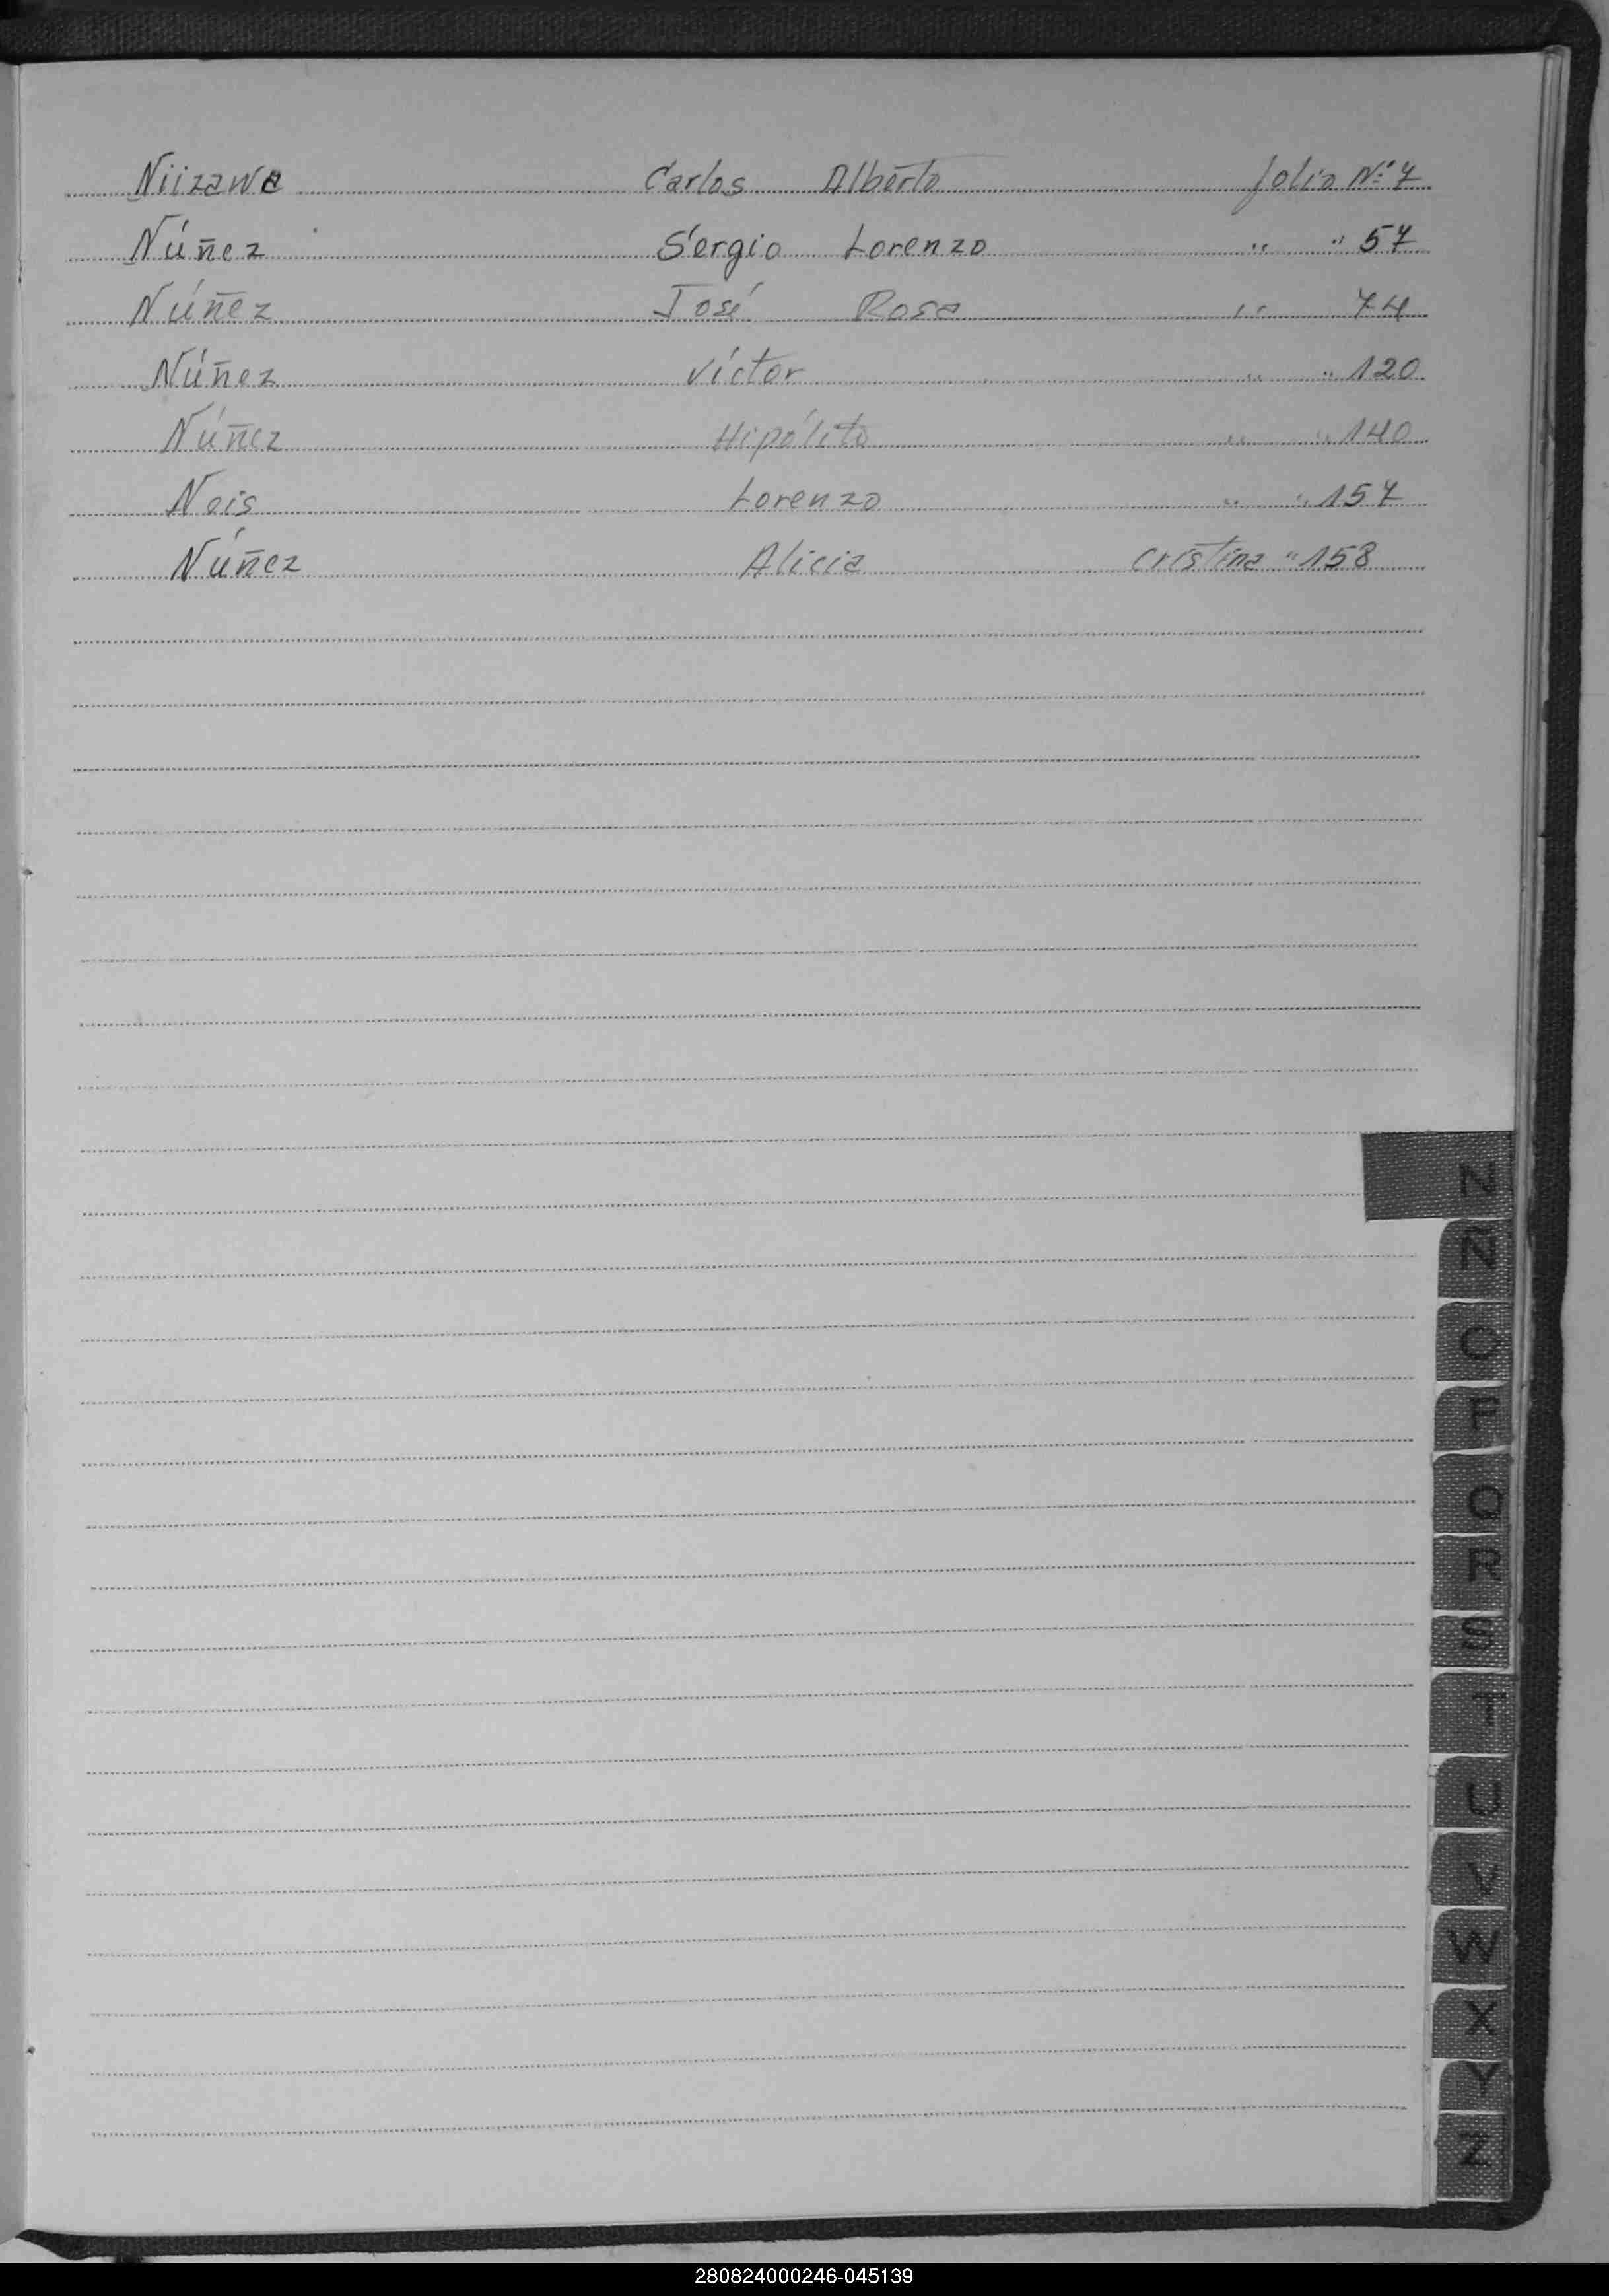 Niizawa Carlos Alberto folio Nº 7
Núñez Sergio Lorenzo " " 57
Núñez José Rosa " 74
Núñez Víctor " " 120
Núñez Hipólito " " 140
Neis Lorenzo " " 157
Núñez Alicia Cristina " 158
N
Ñ
O
P
Q
R
S
T
U
V
W
X
Y
Z
280824000246-045139